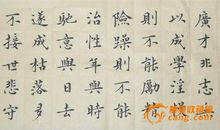 廣才非志
以成學淫慢
則不能勵精
險躁則不能
治性年與時
馳意與日去
遂成枯落多
不接世悲守